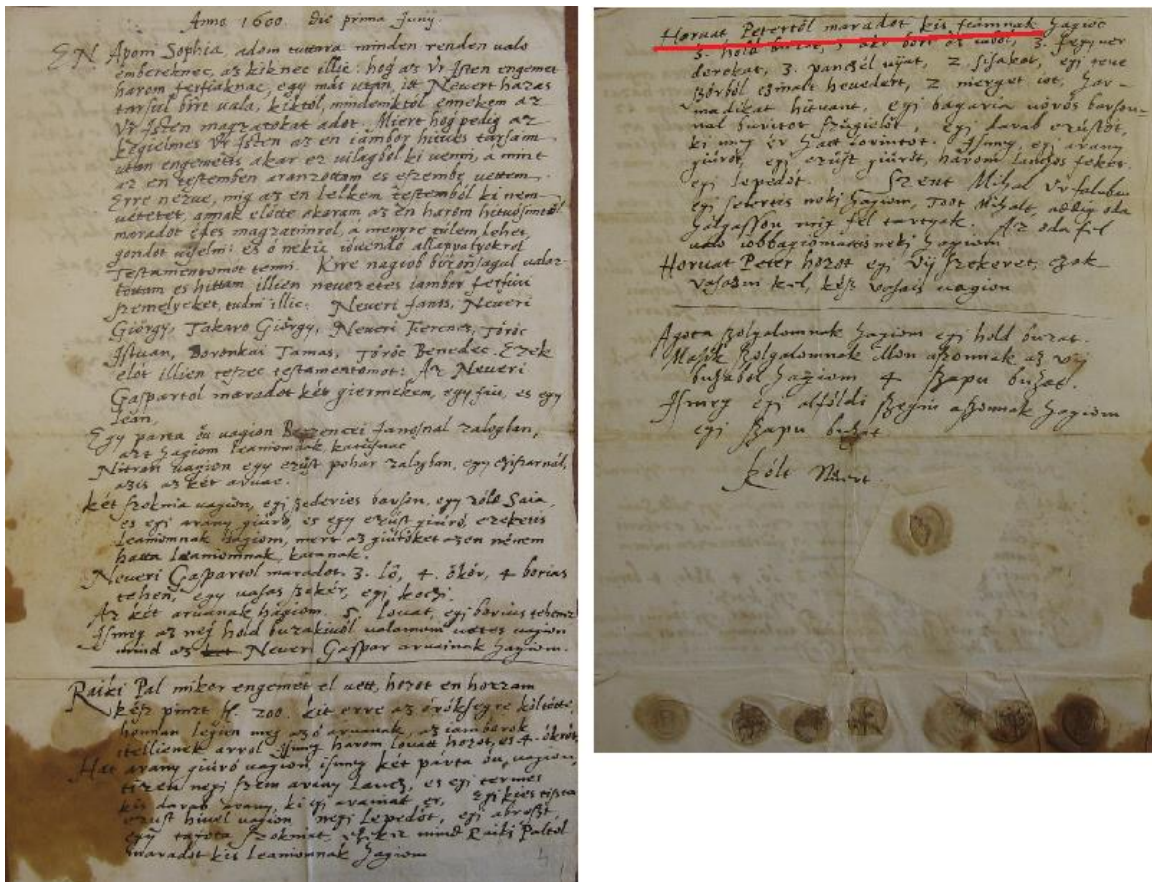 Anno 1600. die prima Junij.
EN Aponi Sophia, adom tuttara minden renden valo
embereknec, az kiknec illic: hog az Vr Isten engemet
három ferfiaknac, egy más utan, it Neuert hazas
tarsul birt vala, kiktöl, mindeniktöl ennekem az
Vr Isten magzatokat adot. Miert hog pedig az
kegielmes Vr Isten az en iámbor hitues tarsaim
utan engemetis akar ez vilagbol ki venni, a mint
az en testemben aranzottam es eszembe vettem.
Erre nezue, mig az en lelkem testemböl ki nem
vetetet, annak elötte akaram, az en harom hituösimtöl
maradot édes magzatimrol, a menyre tülem lehet,
gondot uiselni: es ö nekik iöuendö allapatyokrol
Testamentomot tenni. Kire nagiob bizonsagul valaz-
tottam es hittam illien neuezetes iambor ferfiui
szemelyeket, tudni illic: Neueri Janos, Neueri
Giörgy, Takaro Giörgy, Neueri Ferencz, Töröc
Istuan, Boronkai Tamas, Töröc Benedec. Ezek
elöt illien teszec testamentomot: Az Neueri
Gaspartol maradot két giermekem, egy fiu, es egy
leán,
Egy parta öu uagion Berenczi Janosnal zalogban,
azt hagiom leaniomnak, katusnac.
Nitran uagion egy ezüst pohar zalogban, egy czisszarnál,
azis az két aruae.
két szoknia uagion, egi szederies barson, egy zöld Saia,
es egi arany giürö, es egy ezüst giürö, ezeketis
leaniomnak hagiom, mert az giüröket azen nénem
hatta leaniomnak, katanak.
Neueri Gaspartol maradot. 3. lö, 4. ökör, 4 borias
tehen, egy uasas szekér, egi koczi.
Az két aruanak hagiom. 5 louat, egi borius tehenet
Ismeg az nej hold buzakiuöl ualamim uetes uagion
mind az Neueri Gaspar aruainak hagiom.
Raiki Pal mikor engemet el uett, hozot en hozzam
kész pinzt fl. 200. kit erre az örökségre költötte,
honnan legien meg az ö aruanak, az iamborok
itellienek arrol. Ismeg harom louatt hozot, es 4. ökröt,
Hat arany giürö uagion, ismeg két parta öu, uagion,
tizen negi szem arany Lancz, es egi termes
kis darab arany, ki egi araniat er. Egi kies tiszta
ezust hiuel uagion negi lepedöt, egi abroszt
egy tafota szokniat, ezekit mind Raiki Paltol
maradot kis leaniomnak hagiom
Horuat Petertöl maradot kis fiamnak hagioc
3. hold buzat, 3. fegiuer
derekat, 3. panczél ujat, 2 sisakot, egi teue
szörböl czinalt hevedert, 2 merget iot, har-
madikat hituant, egi bagaria uörös barson-
nal buritot szügielöt, egi darab ezüstöt,
ki meg ér hatt forintot. Ismeg, egi arany
giüröt, egi ezüst giüröt, három lanczos fekös
egi lepedöt. Szent Mihal Vr faluban
egi sesertes neki hagiom, Toot Mihalt, addig oda
halgasson mig fel tartyak. Az oda fel
ualo iobbagiomatis neki hagiom
Horuat Peter hozot egi Vij szekeret, czak
uasazni kel, kész uasais uagion
Agota szolgalomnak hagiom egi hold buzat.
Masik szolgalomnak Ilon aszonnak az vij
buzabol hagiom 4 szapu buzat.
Ismeg egi alföldi szegin aszonnak hagiom
egi szapu buzat
költ Niuert.